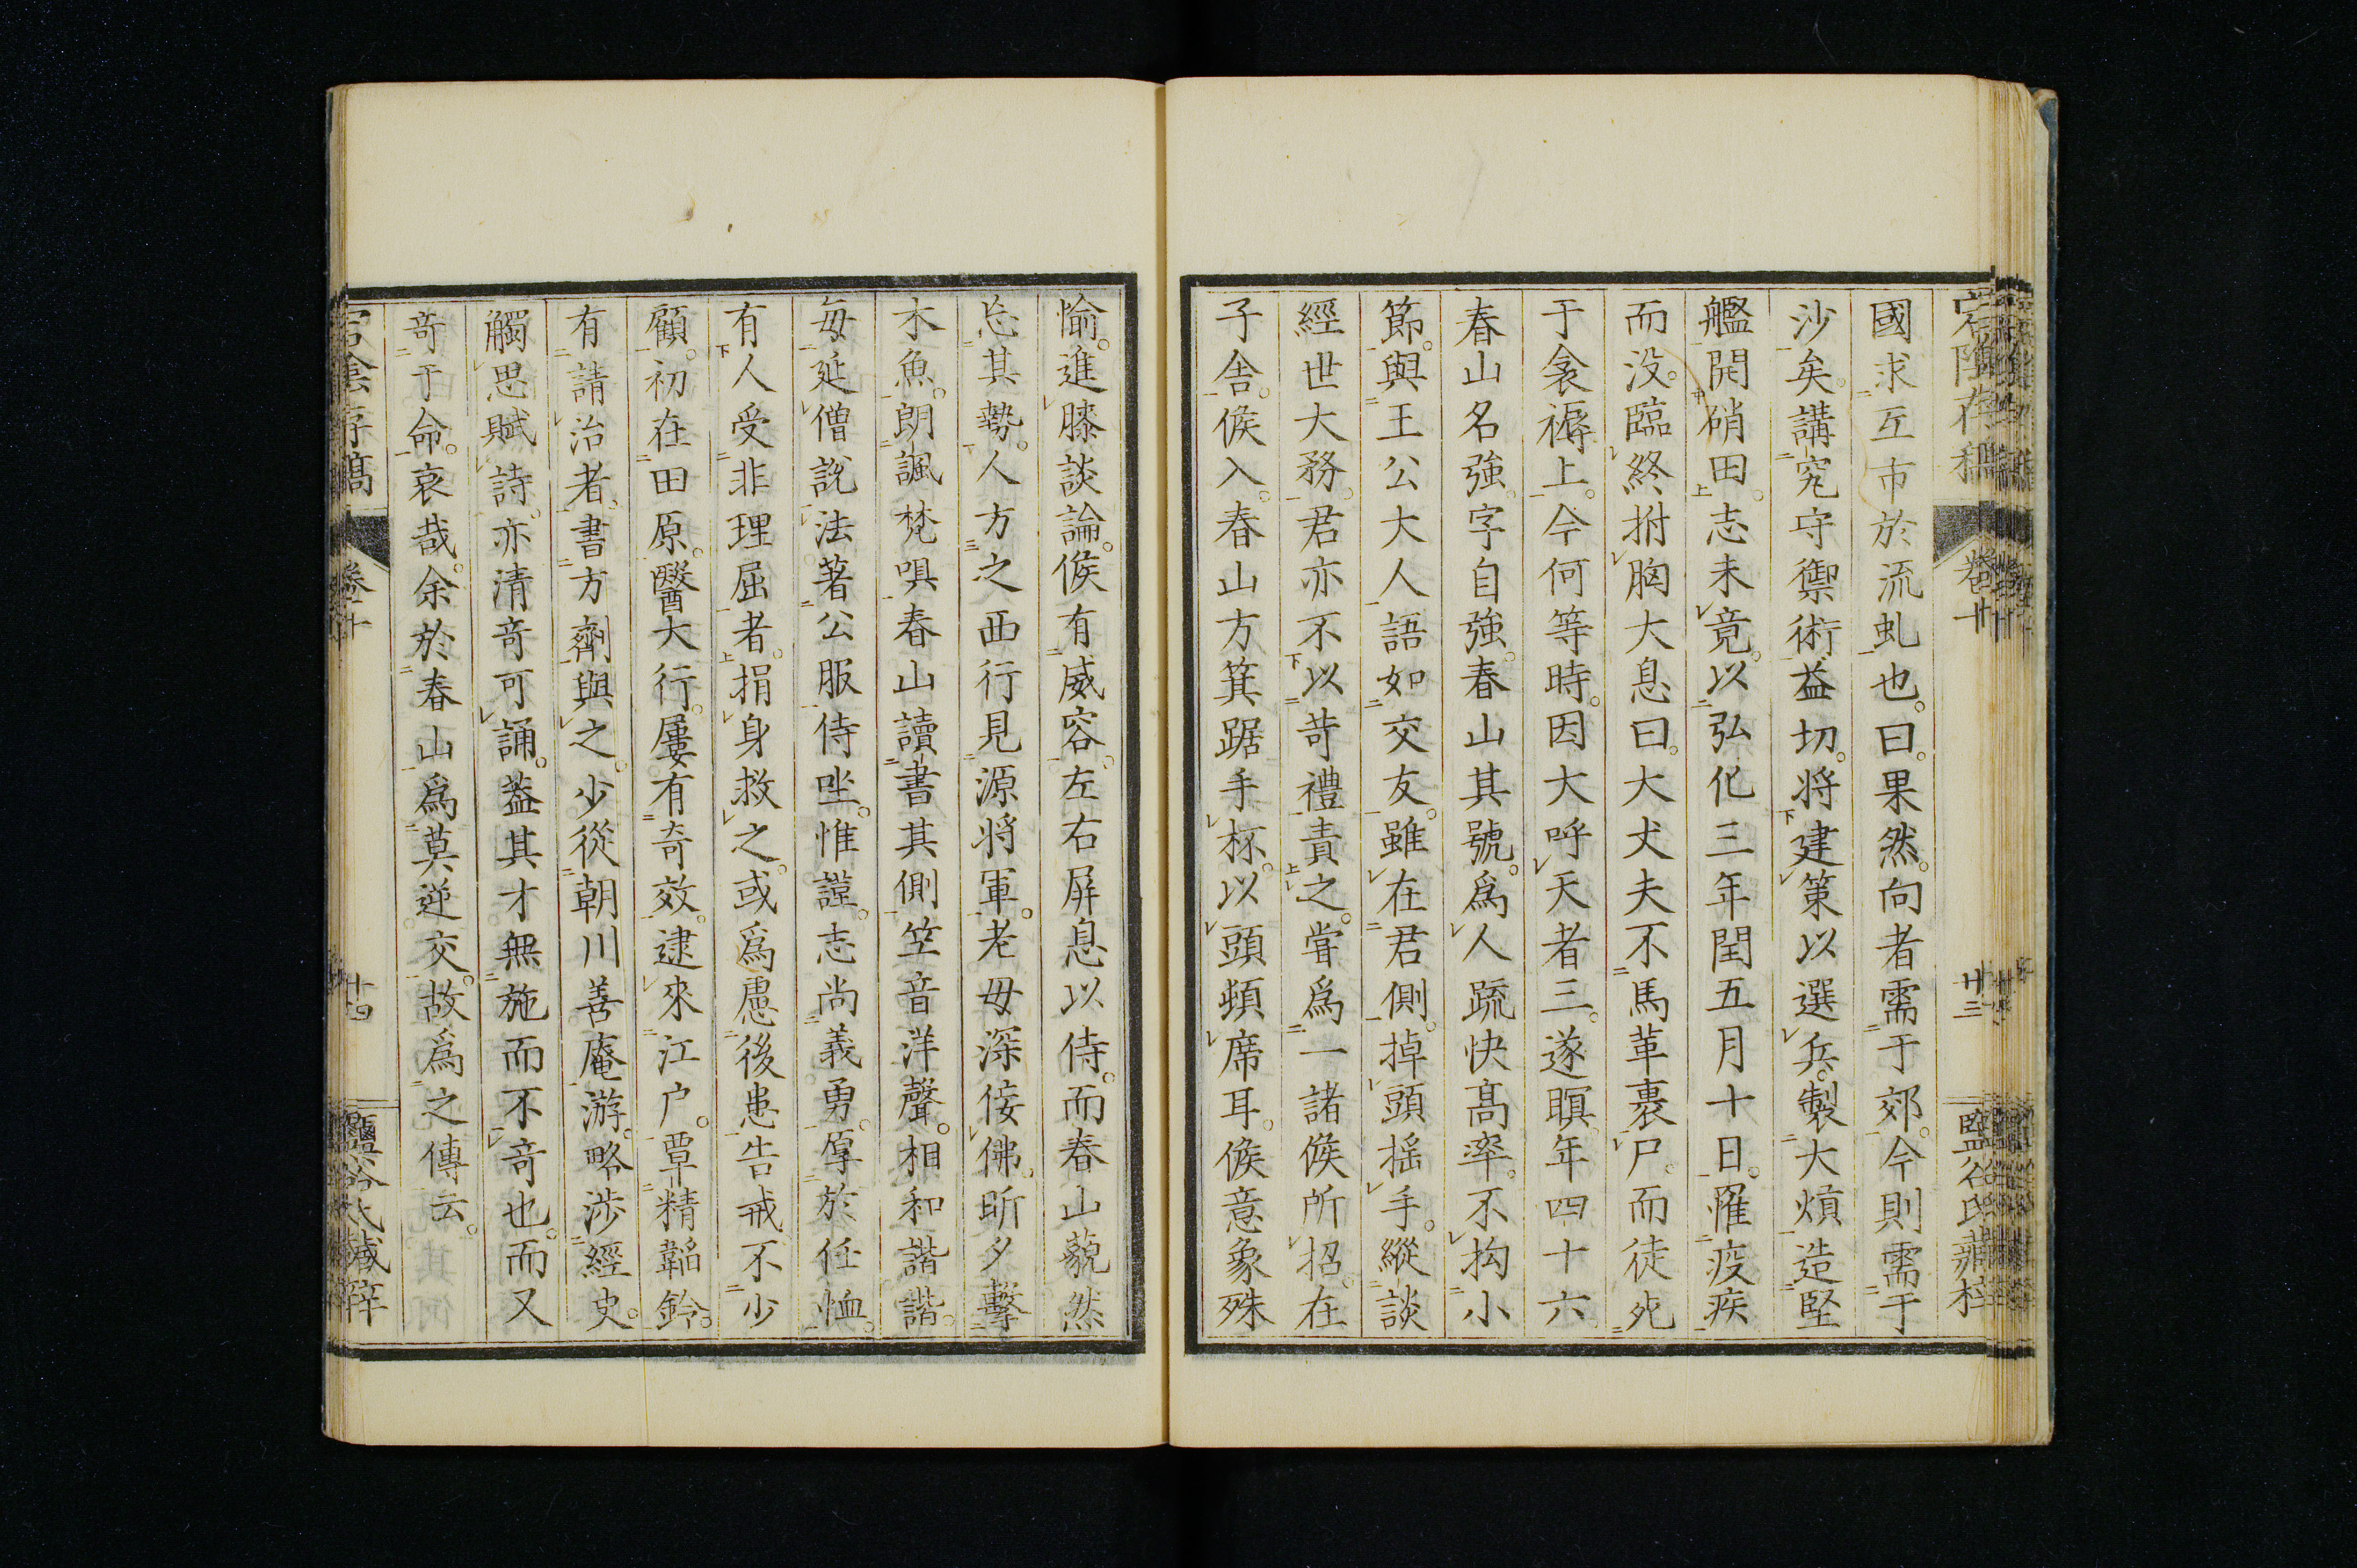 國求互市於流虬也。曰。果然。向者需于郊。今則需于
沙矣。講究守禦術益切。将建策以選兵。製大熕造堅
艦開硝田。志未竟。以弘化三年閏五月十日。罹疫疾
而没。臨終拊胸大息曰。大丈夫不馬革裹尸。而徒死
于衾褥上。今何等時。因大呼天者三。遂瞑。年四十六
春山名強。字自強。春山其號。爲人疏快髙率。不抅小
節。與王公大人語如交友。雖在君側。掉頭揺手。縱談
經世大務。君亦不以苛禮責之。嘗爲一諸侯所招。在
子舎。侯入。春山方箕踞手杯。以頭頓席耳。侯意象殊
愉。進膝談論。侯有威容。左右屏息以侍。而春山藐然
忘其勢。人方之西行見源将軍。老毋深倿佛。昕夕擊
木魚。朗諷梵唄。春山讀書其側。笠音洋聲。相和諧諧。
毎延僧説法。著公服侍坐。惟謹。志尚義勇。厚於任恤。
有人受非理屈者。捐身救之。或爲慮後患告戒。不少
顧。初在田原。醫大行。屢有奇效。逮來江户。覃精韜鈐。
有請治者。書方劑與之。少從朝川善庵游。略涉經史。
觸思賦詩。亦清竒可誦。葢其才無施而不竒也。而又
竒于命。哀哉。余於春山爲莫逆交。故爲之傳云。